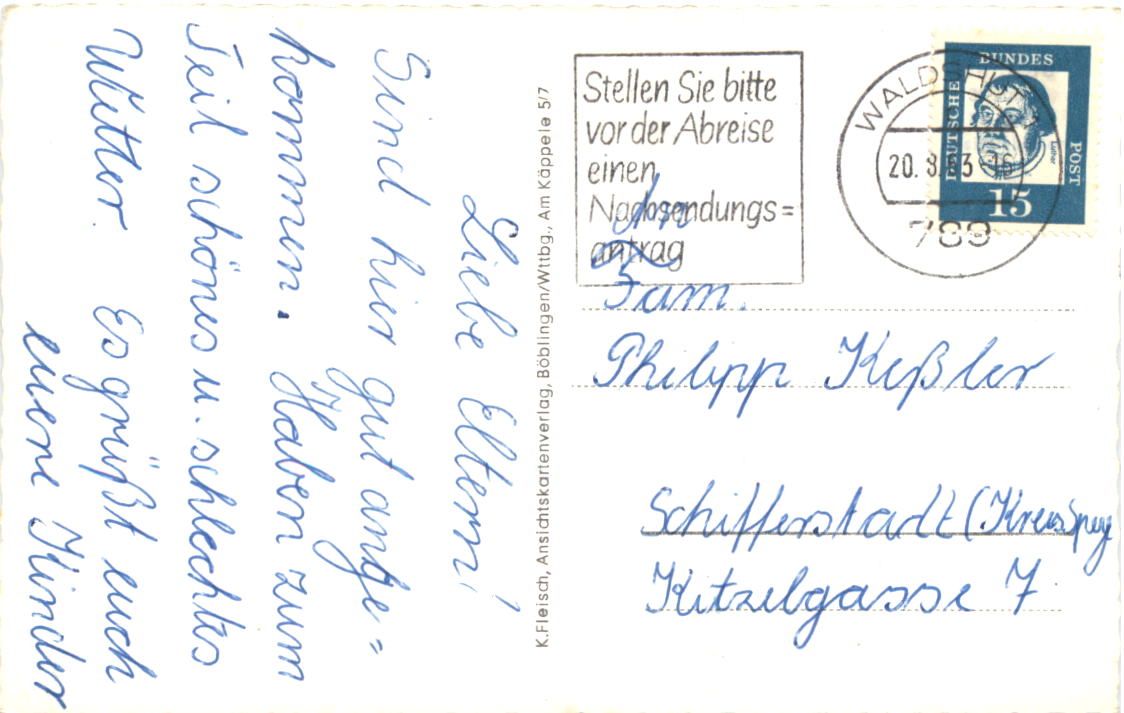 Liebe Eltern!
Sind hier gut ange=
kommen. Haben zum
Teil schönes u. schlechtes
Wetter. Es grüßt euch
euere Kinder
K. Fleisch, Ansichtskartenverlag, Böblingen/Wttbg., Am Käppele 5/7
Stellen Sie bitte
vor der Abreise
einen
Nachsendungs=
antrag
WALDSHUT
20. 8. 63 -16
789
DEUTSCHE BUNDES POST
Luther
15
An
Fam.
Philipp Keßler
Schifferstadt (Kreis Spey
Kitzelgasse 7